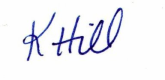 K Hill